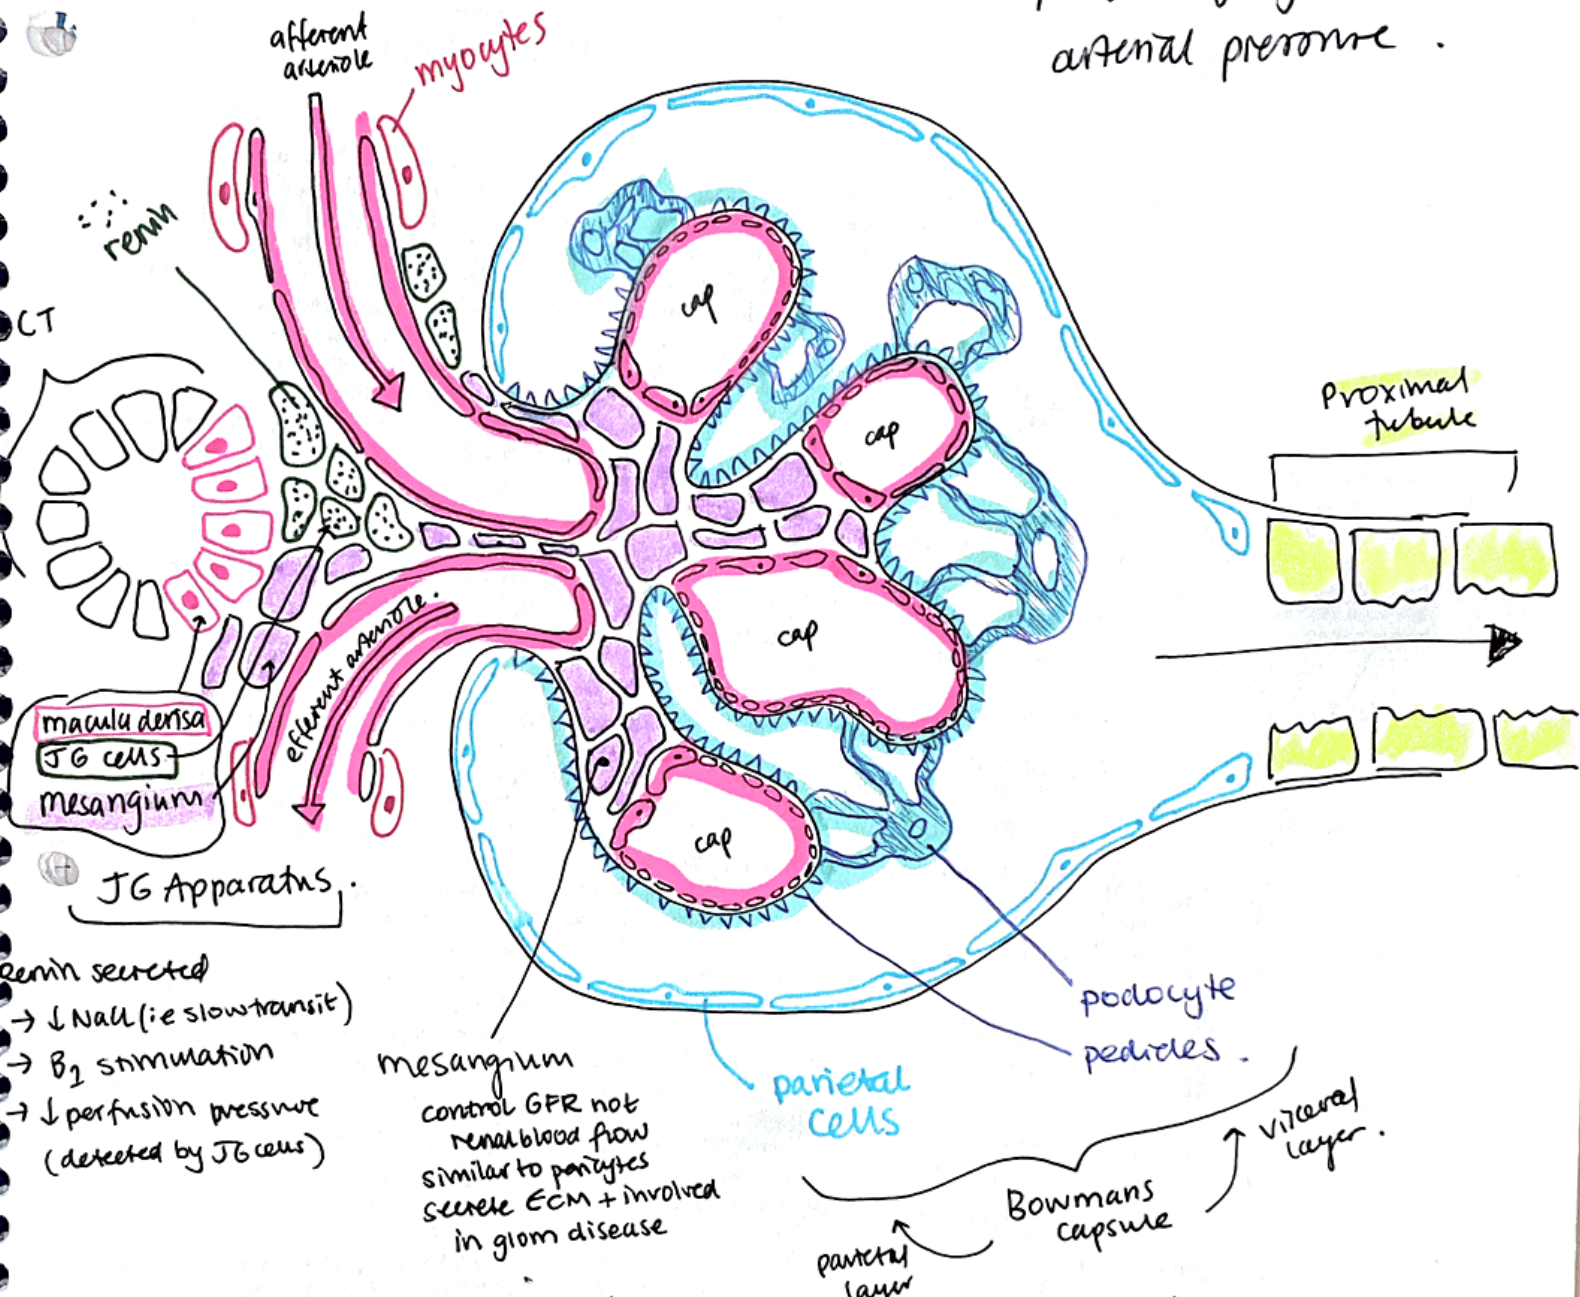 arterial pressure .
afferent
arteriole
myocytes
renin
CT
cap
cap
cap
cap
Proximal
tubule
efferent arteriole.
macula densa
JG cells
mesangium
JG Apparatus .
Renin secreted
→ ↓ NaCl (ie slow transit)
→ B1 stimulation
→ ↓ perfusion pressure
(detected by JG cells)
mesangium
control GFR not
renal blood flow
similar to pericytes
secrete ECM + involved
in glom disease
parietal
cells
podocyte
pedicles .
visceral
layer .
Bowmans
capsule
parietal
layer